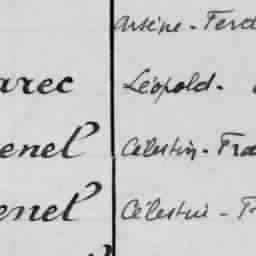 Arsène - Ferd
arec Léopold -
enel Célestin - Fra
enel Célestin - Fr